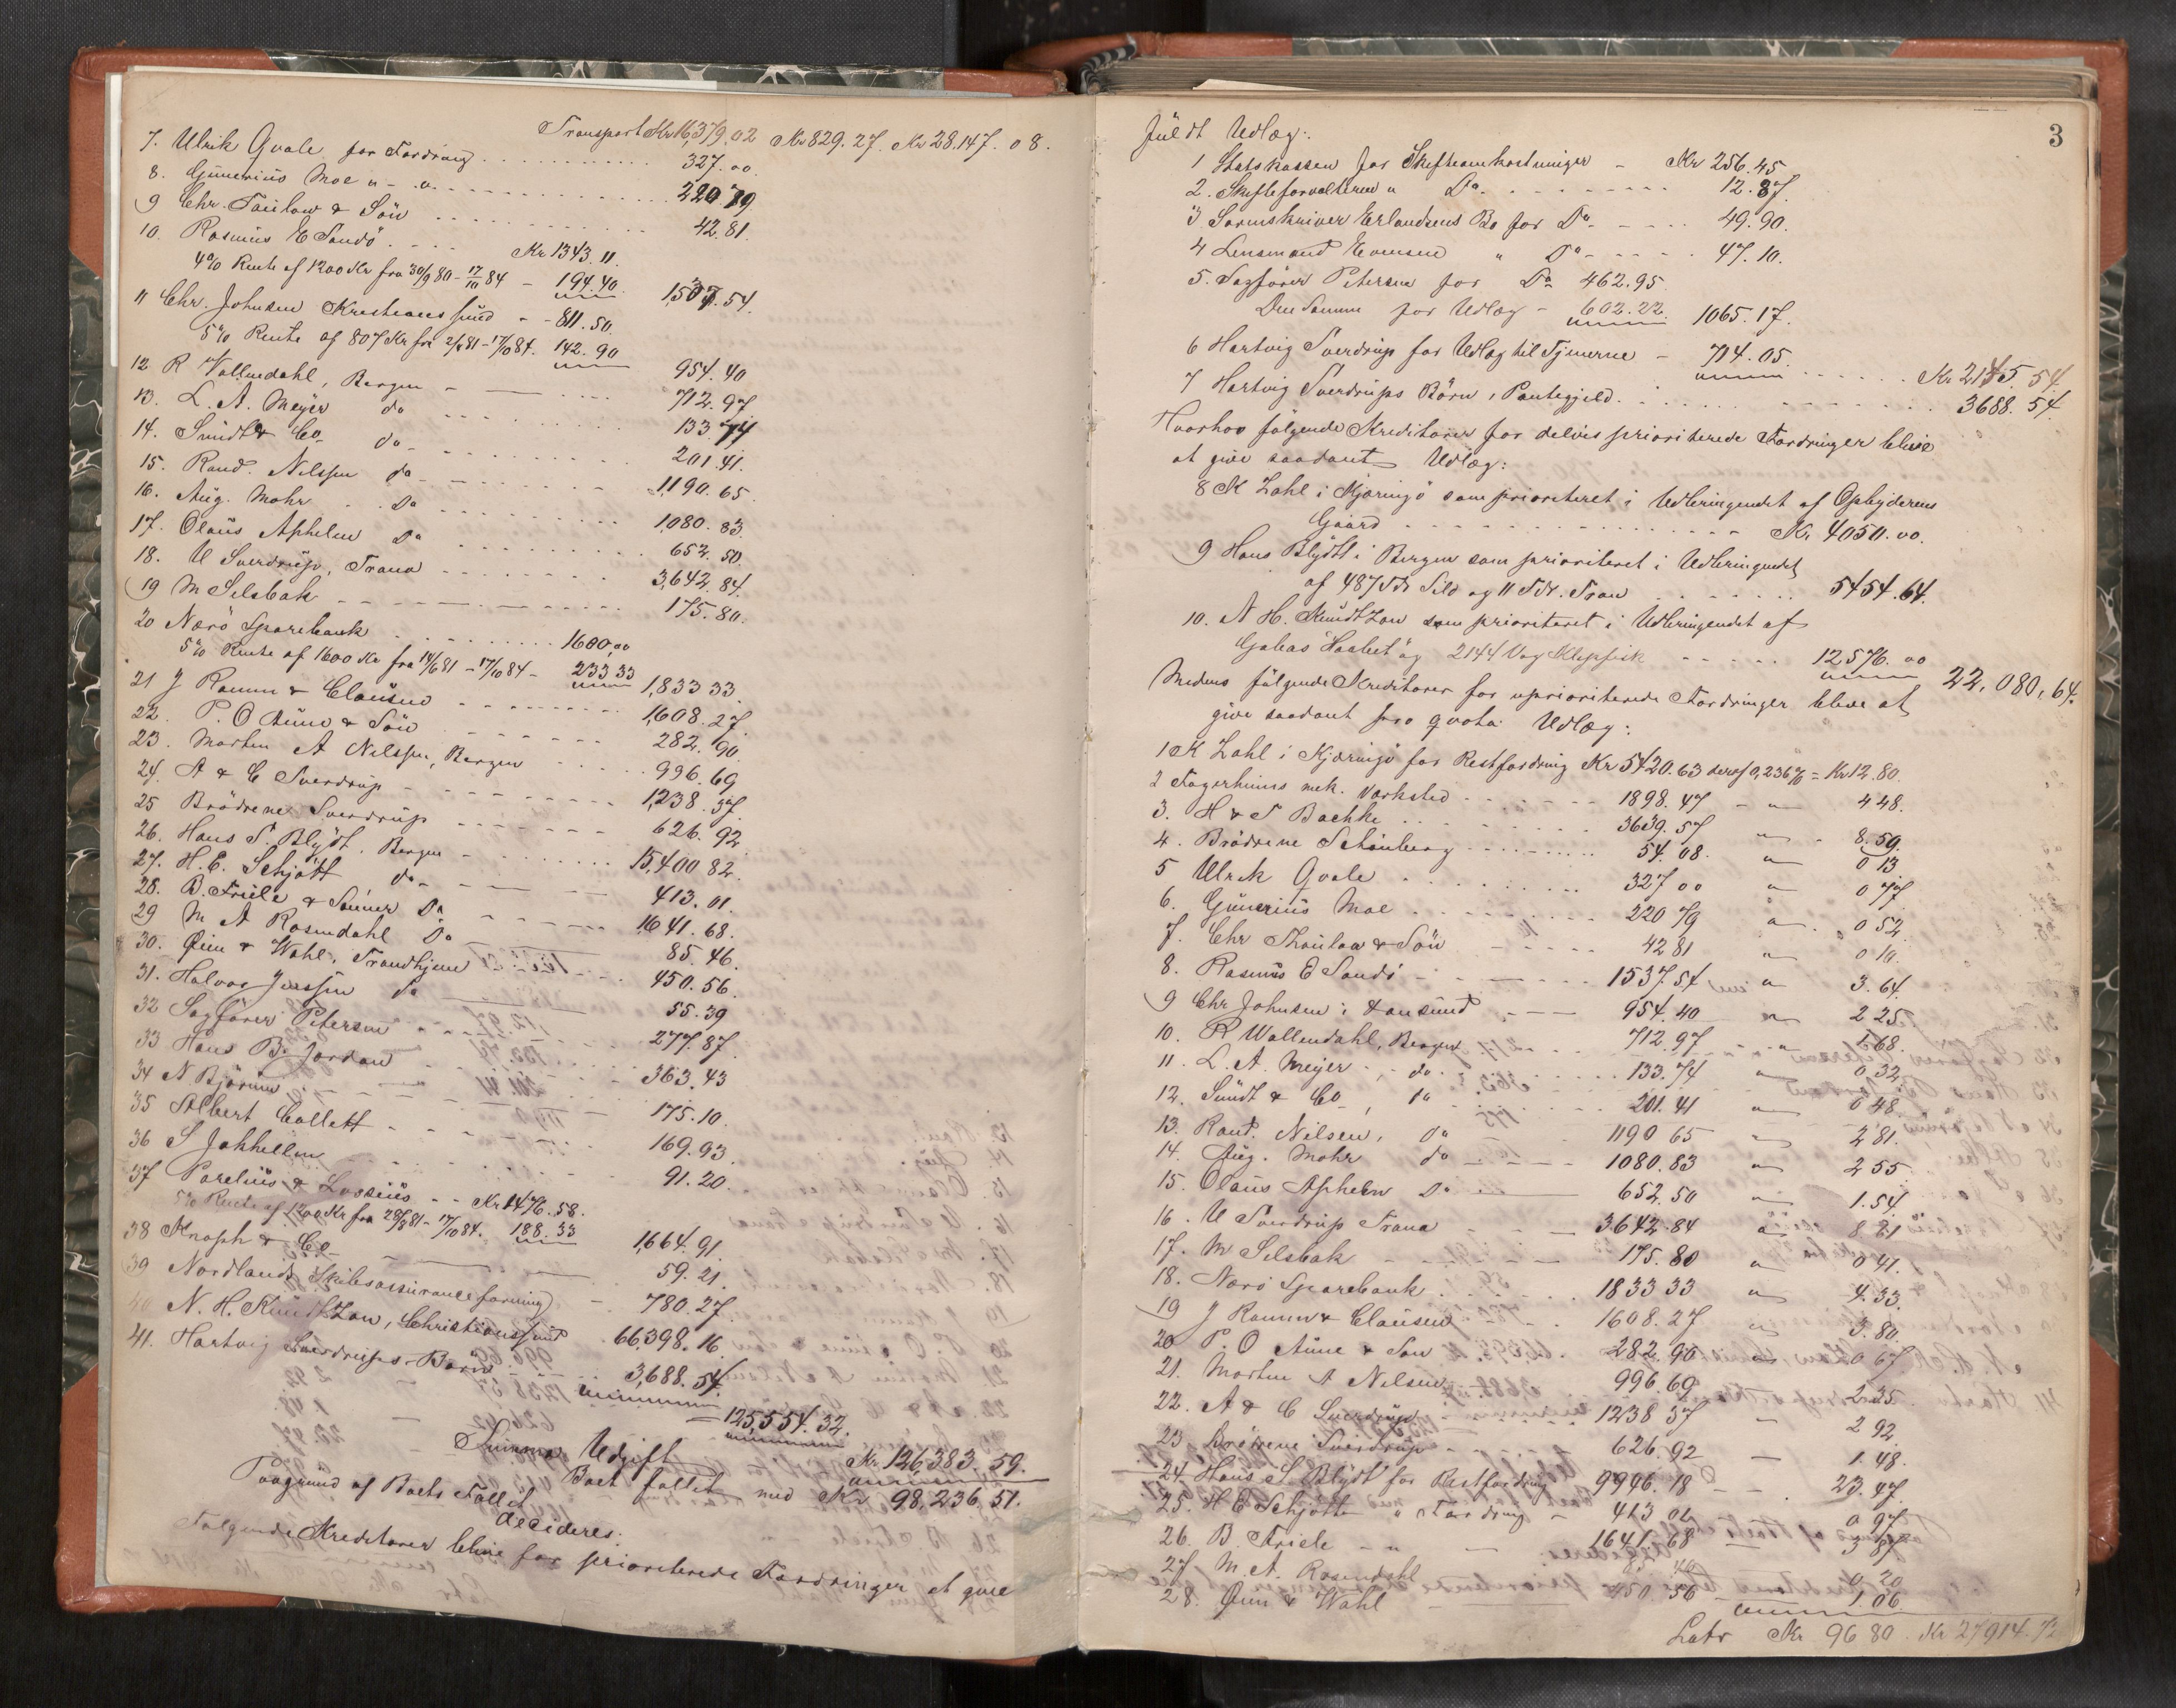 Transport Kr 16,379.02 Kr 829.27. Kr 28.147.08.
7. Ulrik Qvale for Fordring 327.00.
8. Gunerius Moe " - " 220 79
9 Chr. Taulow & Sön 42.81.
10. Rasmus E Sandö Kr 1343.11.
4% Rente af 1200 Kr fra 30/9 80 - 17/10 84 - 194.40. 1,537.54.
11 Chr. Johnsen Kristianssund - 811.50.
5% Rente af 807 Kr fra 2/4 81 - 17/10 84. 142.90 954.40
12 R Vallendahl, Bergen 712.97
13. L. A. Meyer do 133.74
14. Sundt & Co do 201.41.
15. Rand. Nilssen do 1190.65.
16. Aug. Mohr Do 1080.83.
17. Olaus Asphelen Do 652.50
18. U Sverdrup, Trana 3,642.84.
19 M Selsbak 175.80.
20 Nærö Sparebank 1600,00
5% Rente af 1600 Kr fra 14/6 81 - 17/10 84 - 233 33 1,833 33
21 J Ramm & Clausen 1,608.27.
22. P. O Aune & Sön 282.90
23. Morten A Nilssen, Bergen 996.69
24. A & C Sverdrup 1,238.37.
25 Brödrene Sverdrup 626.92
26. Hans S. Blydt. Bergen 15,400 82.
27. H. E. Schjött do 413.01.
28. B. Friele & Sönner Do 1641.68.
29 M A Rosendahl Do 85.46.
30. Öien & Wahl, Trondhjem 450.56.
31. Halvor Jenssen do 55.39
32 Sagförer Petersen 277.87.
33 Hans B. Jordan 363.43
34 N Björum 175.10.
35 Albert Collett 169.93.
36 S Jakhellen 91.20.
37 Parelius & Lossius - - Kr 1476.58.
5% Rente af 1200 Kr fra 28/8 81 - 17/10 84. 188.33 1,664.91.
38 Knoph & Co 59.21.
39 Nordlands Skibsassuranceforening 780.27.
40 N. H. Knudtzon, Christianssund 66,398.16.
41. Hartvig Sverdrups Börn 3,688.54.
125,554.32.
Summa Udgift Kr. 126,383.59.
Boet fallit med Kr 98,236.51.
Paagrund af Boets Fallit
decideres:
Følgende Kreditorer blive for prioriterede Fordringer at give
3
fuldt Udlæg:
1 Statskassen for Skifteomkostninger - Kr 256.45
2. Skifteforvalteren " Do. 12.87.
3 Sorenskriver Erlandsens Bo for Do 49.90.
4 Lensmand Evensen " Do 47.10.
5. Sagförer Petersen for Do 462.95
Den Samme for Udlæg - 602.22. 1065.17.
6 Hartvig Sverdrup for Udlæg til Tjenerne - 714.05. Kr 2145.54.
7 Hartvig Sverdrups Börn, Pantegjeld. 3688.54
Hvorhos fölgende Kreditorer for delvis prioriterede Fordringer blive
at give saadant Udlæg:
8 K Zahl i Kjæringö som prioriteret i Udbringendet af Opbyderens
Gaard Kr 4050.00.
9 Hans Blydt i Bergen som prioriteret i Udbringendet
af 487 Tdr Sild og 11 Tdr. Tran 5454.64.
10. N H. Knudtzon som prioriteret i Udbringendet af
Galeas "Haabet" og 2144 Vog Klipfisk 12576.00 22,080,64.
Medens fölgende Kreditorer for uprioriterede Fordringer blive at
give saadant pro qvota Udlæg:
1 K Zahl i Kjæringö for Restfordring Kr 5420.63 deraf 0,236% = Kr 12.80.
2 Fagerheims mek. Værksted 1898.47 - " 4 48.
3. H & S Bachke 3639.57 " 8.59.
4. Brödrene Schönberg 54.08. " 0 13
5 Ulrik Qvale 327 00 " 0 77.
6. Gunerius Moe 220 79 " 0 52.
7. Chr Thaulow & Sön 42 81 " 0 10.
8. Rasmus E Sandö 1537.54 " 3.64.
9 Chr Johnsen i Xansund 954.40 " 2 25.
10. R Wallendahl, Bergen 712.97 " 1.68.
11. L. A. Meyer do 133.74 " 0 32
12. Sundt & Co, do 201.41 " 0 48.
13. Rand. Nilsen, do 1190 65 " 2 81.
14. Aug. Mohr do 1080.83 " 2 55.
15. Olaus Asphelen Do 652.50 " 1.54.
16. U Sverdrup Trana 3642.84 " 8 61
17. M Selsbak 175.80 " 0 41.
18. Nærö Sparebank 1833 33 " 4.33.
19 J Ramm & Clausen 1608.27 " 3.80.
20 P. O Aune & Son 282.90 " 0 67
21. Morten A Nilsen 996.69 2.35
22. A & C Sverdrup 1238 37 " 2 92
23 Brödrene Sverdrup 626.92 — 1.48.
24. Hans S Blydt for Restfordring 9946.18 - - 23.47.
25. H E Schjött " Fordring - 413 01 0 97
26. B. Friele - " 1641.68 3 87
27. M. A. Rosendahl 85 46 0 20
28. Öien & Wahl 450.56 1.06.
Latr Kr 96 80. Kr 27914.72